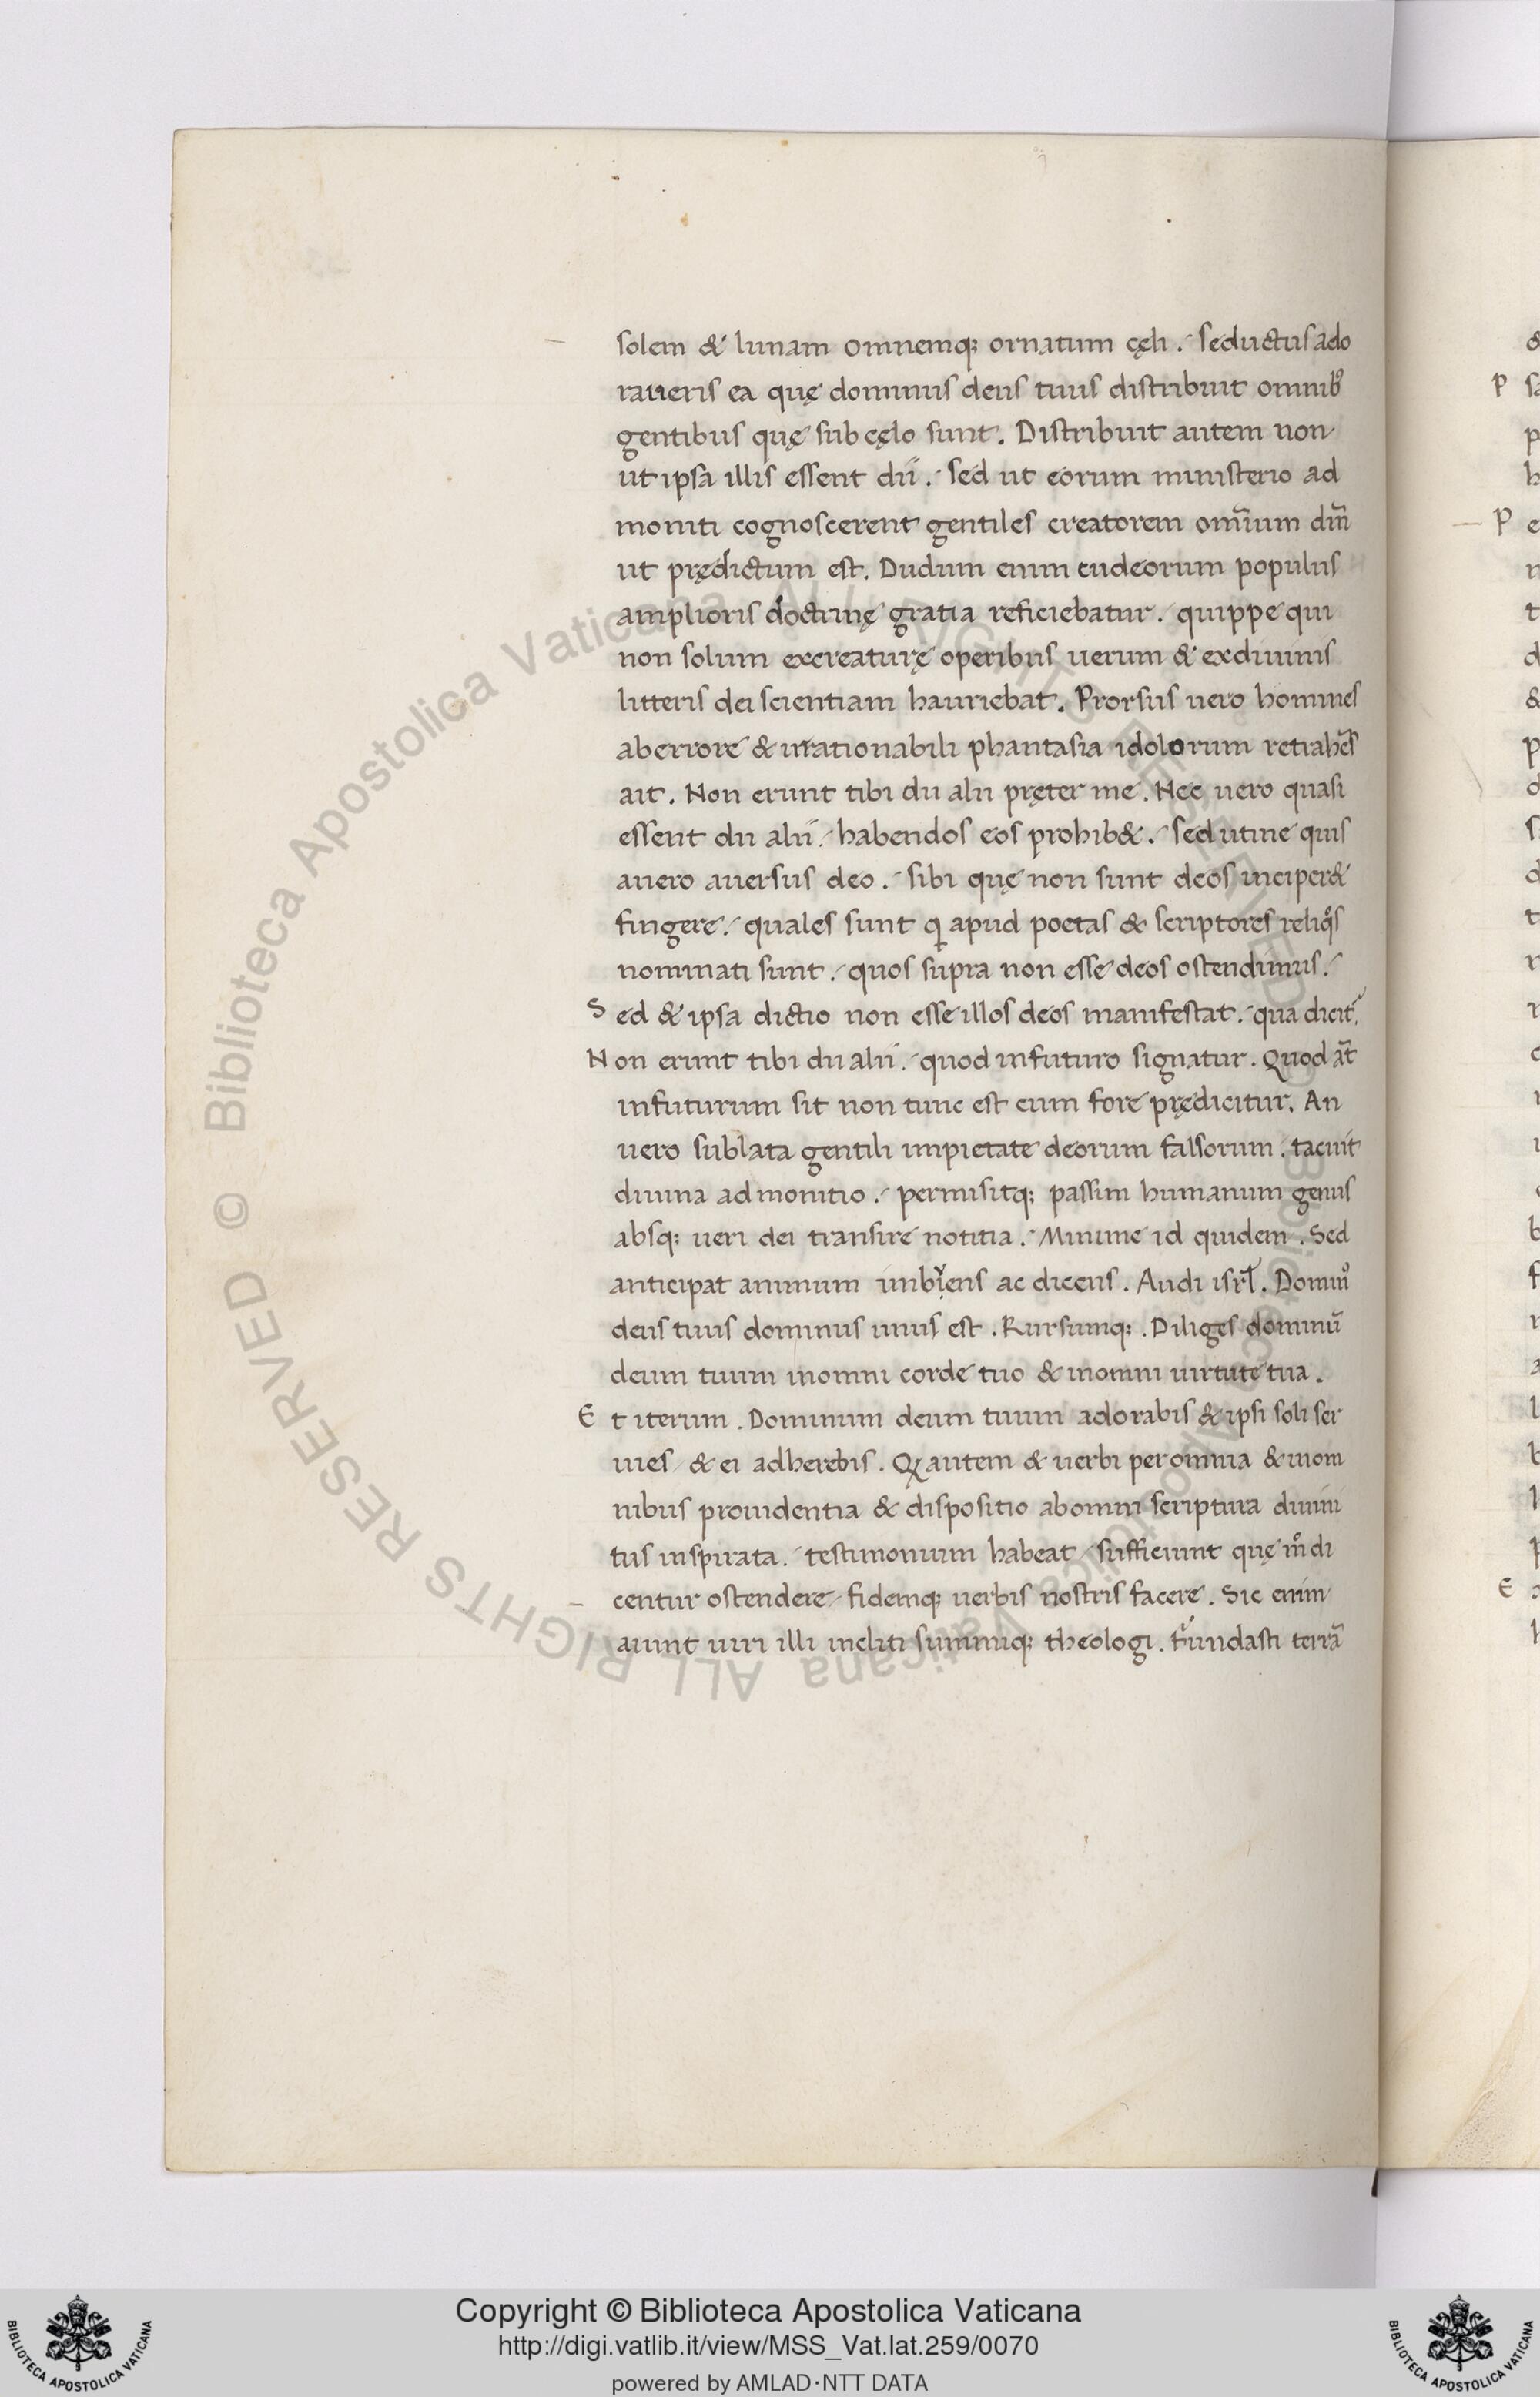 solem & lunam omnemq; ornatum cęli. seductus ado
raueris ea quę dominus deus tuus distribuit omnib9
gentibus quę sub cęlo sunt. Distribuit autem non
ut ipsa illis essent dii. sed ut eorum ministerio ad
moniti cognoscerent gentiles creatorem omīum dm̄
ut prędictum est. Dudum enim eudeorum populus
amplioris doctrinę gratia reficiebatur. quippe qui
non solum excreaturę operibus uerum & exdiuinis
litteris dei scientiam hauriebat. Prorsus uero homines
aberrore & irrationabili phantasia idolorum retrahēs
ait. Non erunt tibi dii alii pręter me. Nec uero quasi
essent dii alii. habendos eos prohib&. sed utine quis
auero auersus deo. sibi quę non sunt deos inciper&
fingere. quales sunt q apud poetas & scriptores reliqos
nominati sunt. quos supra non esse deos ostendimus.
Sed & ipsa dictio non esse illos deos manifestat. qua dicit̄.
Non erunt tibi dii alii. quod infuturo signatur. Quod at̄
infuturum sit non tunc est cum fore prędicitur. An
uero sublata gentili impietate deorum falsorum. tacuit
diuina admonitio. permisitq; passim humanum genus
absq; ueri dei transire notitia. Minime id quidem. Sed
anticipat animum imbyens ac dicens. Audi isrl̄. Domin9
deus tuus dominus unus est. Rursumq;. Diliges dominū
deum tuum inomni corde tuo & inomni uirtute tua.
Et iterum. Dominum deum tuum adorabis & ipsi soli ser
uies & ei adherebis. Qꝫ autem & uerbi per omnia & inom
nibus prouidentia & dispositio abomni scriptura diuini
tus inspirata. testimonium habeat sufficiunt quę mo di
centur ostendere fidemq; uerbis nostris facere. Sic enim
aiunt uiri illi incliti summiq; theologi. Fundasti terrā
Biblioteca Apostolica Vaticana ALL RIGHTS RESERVED ©
Copyright © Biblioteca Apostolica Vaticana
http://digi.vatlib.it/view/MSS_Vat.lat.259/0070
powered by AMLAD·NTT DATA
BIBLIOTECA APOSTOLICA VATICANA
BIBLIOTECA APOSTOLICA VATICANA